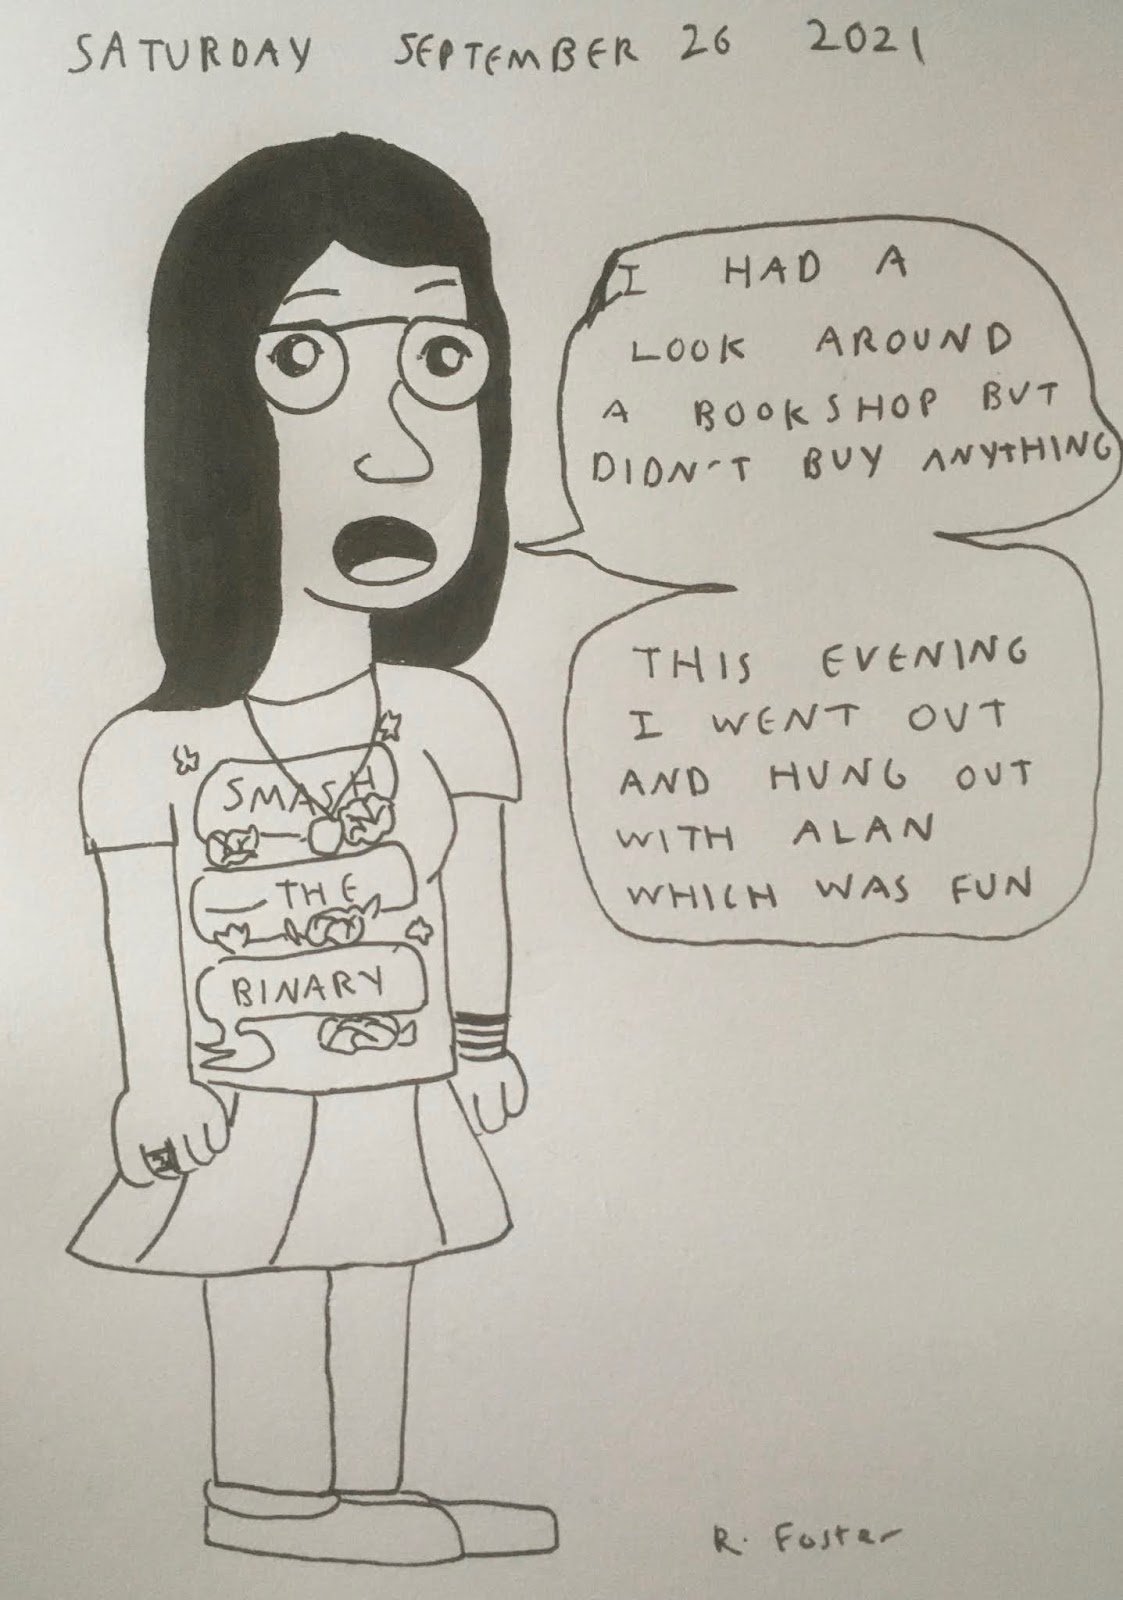 SATURDAY SEPTEMBER 26 2021
I HAD A
LOOK AROUND
A BOOKSHOP BUT
DIDN'T BUY ANYTHING
THIS EVENING
I WENT OUT
AND HUNG OUT
WITH ALAN
WHICH WAS FUN
SMASH
THE
BINARY
R. Foster